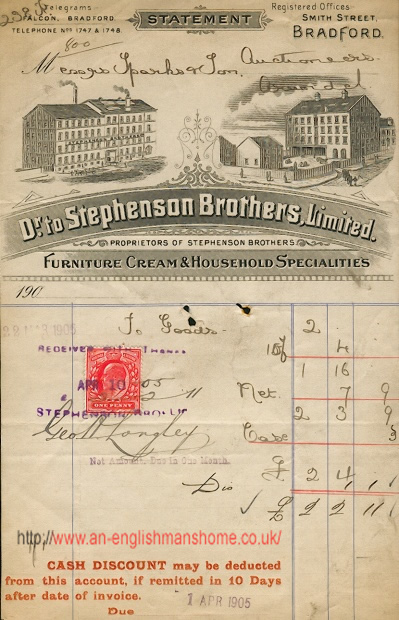 Telegrams
FALCON, BRADFORD.
TELEPHONE Nos 1747 & 1748.
800
STATEMENT
Registered Offices
SMITH STREET,
BRADFORD.
Messrs Sparks & Son, Auctioneers
Dr. to Stephenson Brothers, Limited.
PROPRIETORS OF STEPHENSON BROTHERS'
FURNITURE CREAM & HOUSEHOLD SPECIALITIES
190
28 MAR 1905
To Goods 2
4
RECEIVED WITH THANKS
1 16
APR 10 05
Net. 7 9
ONE PENNY
STEPHENSON BROS LD
2 3 9
Geo W Longley
Case 3
Net Amount Due in One Month.
£ 2 4
Dis 1 1
£ 2 2 11
http://www.an-englishmanshome.co.uk/
CASH DISCOUNT may be deducted
from this account, if remitted in 10 Days
after date of invoice.
1 APR 1905
Due